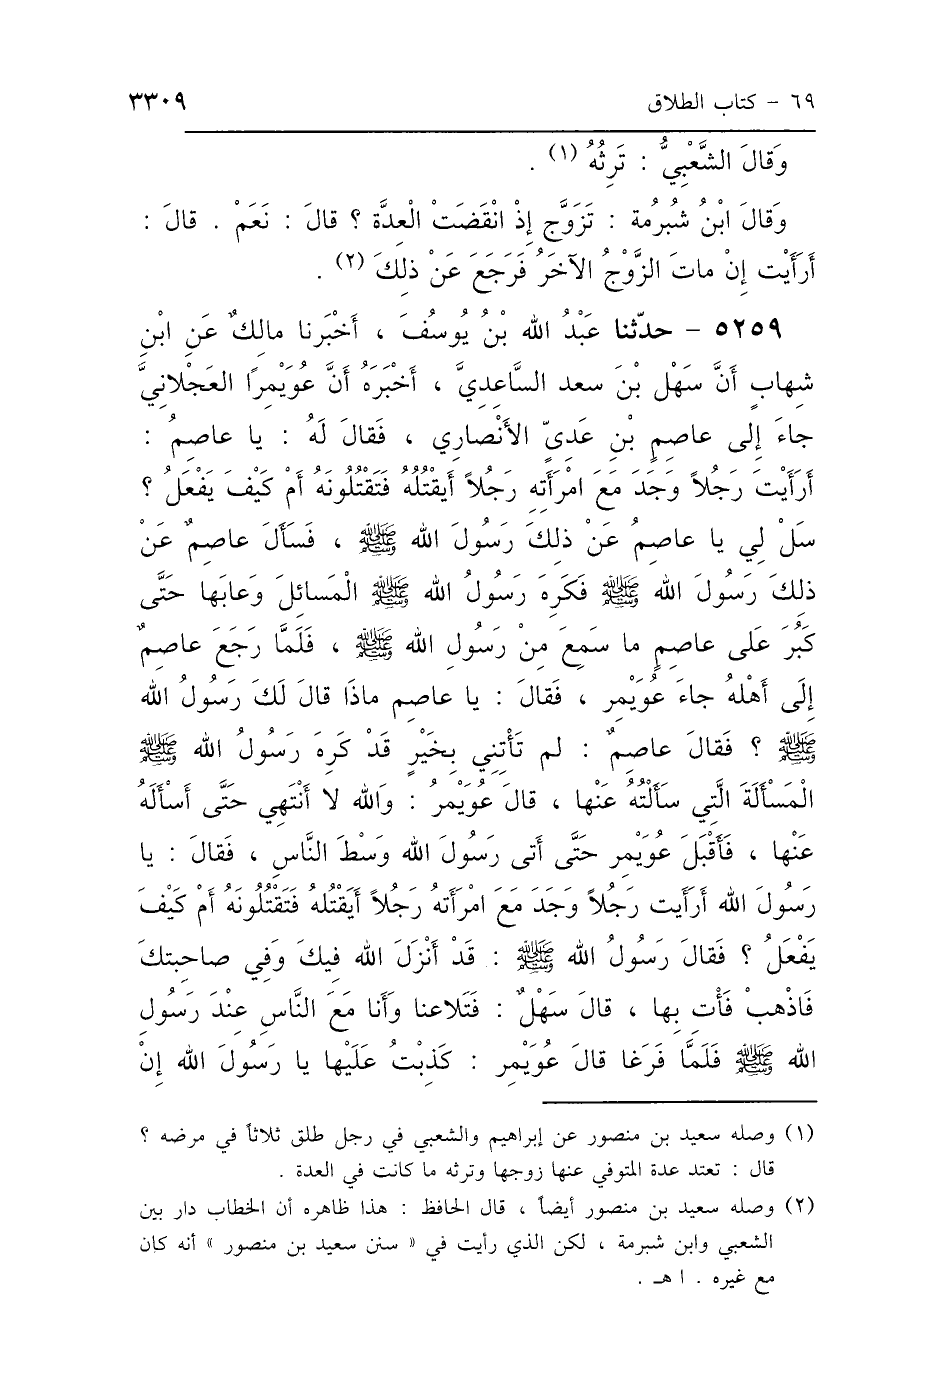 ٦٩ - كتاب الطلاق ٣٣٠٩
وَقالَ الشَّعْبِيُّ : تَرِثُهُ (١) .
وَقالَ ابْنُ شُبْرُمة : تَزَوَّج إِذْ انْقَضَتْ الْعِدَّة ؟ قالَ : نَعَمْ . قالَ :
أَرَأَيْت إِنْ ماتَ الزَّوْجُ الآخَرُ فَرَجَعَ عَنْ ذلِكَ (٢) .
٥٢٥٩ - حدّثنا عَبْدُ الله بْنُ يُوسُفَ ، أَخْبَرَنا مالكٌ عَنِ ابْنِ
شِهابٍ أَنَّ سَهْل بْنَ سعد السَّاعِدِيَّ ، أَخْبَرَهُ أَنَّ عُوَيْمِرًا العَجْلانِيَّ
جاءَ إِلى عاصِمِ بْنِ عَدِيّ الأَنْصارِي ، فَقالَ لَهُ : يا عاصِمُ :
أَرَأَيْتَ رَجُلاً وَجَدَ مَعَ امْرأَتِهِ رَجُلاً أَيقْتُلُهُ فَتَقْتُلُونَهُ أَمْ كَيْفَ يَفْعَلُ ؟
سَلْ لِي يا عاصِمُ عَنْ ذلِكَ رَسُولَ الله ﷺ ، فَسأَلَ عاصِمٌ عَنْ
ذلِكَ رَسُولَ الله ﷺ فَكَرِهَ رَسُولُ الله ﷺ الْمَسائِلَ وَعابَها حَتَّى
كَبُرَ عَلَى عاصِمٍ ما سَمِعَ مِنْ رَسُولِ الله ﷺ ، فَلَمَّا رَجَعَ عاصِمٌ
إِلَى أَهْلِهُ جاءَ عُوَيْمِر ، فَقالَ : يا عاصِم ماذَا قالَ لَكَ رَسُولُ الله
ﷺ ؟ فَقالَ عاصِمٌ : لم تَأْتِنِي بِخَيْرٍ قَدْ كَرِهَ رَسُولُ الله ﷺ
الْمَسْأَلَةَ الَّتِي سَأَلْتُهُ عَنْها ، قالَ عُوَيْمِرُ : وَالله لا أَنْتَهِي حَتَّى أَسأَلَهُ
عَنْها ، فَأَقْبَلَ عُوَيْمِر حَتَّى أَتى رَسُولَ الله وَسطَ النَّاسِ ، فَقالَ : يا
رَسُولَ الله أَرَأَيت رَجُلاً وَجَدَ مَعَ امْرأَتِهُ رَجُلاً أَيَقْتُلهُ فَتَقْتُلُونَهُ أَمْ كَيْفَ
يَفْعَلُ ؟ فَقالَ رَسُولُ الله ﷺ : قَدْ أَنْزَلَ الله فِيكَ وَفِي صاحِبتِكَ
فَاذْهبْ فَأْتِ بِها ، قالَ سَهْلٌ : فَتَلاعنا وَأَنا مَعَ النَّاسِ عِنْدَ رَسُولِ
الله ﷺ فَلَمَّا فَرَغا قالَ عُوَيْمِر : كَذبْتُ عَلَيْها يا رَسُولَ الله إِنْ
(١) وصله سعيد بن منصور عن إبراهيم والشعبي في رجل طلق ثلاثاً في مرضه ؟
قال : تعتد عدة المتوفي عنها زوجها وترثه ما كانت في العدة .
(٢) وصله سعيد بن منصور أيضاً ، قال الحافظ : هذا ظاهره أن الخطاب دار بين
الشعبي وابن شبرمة ، لكن الذي رأيت في « سنن سعيد بن منصور » أنه كان
مع غيره . ا هـ .